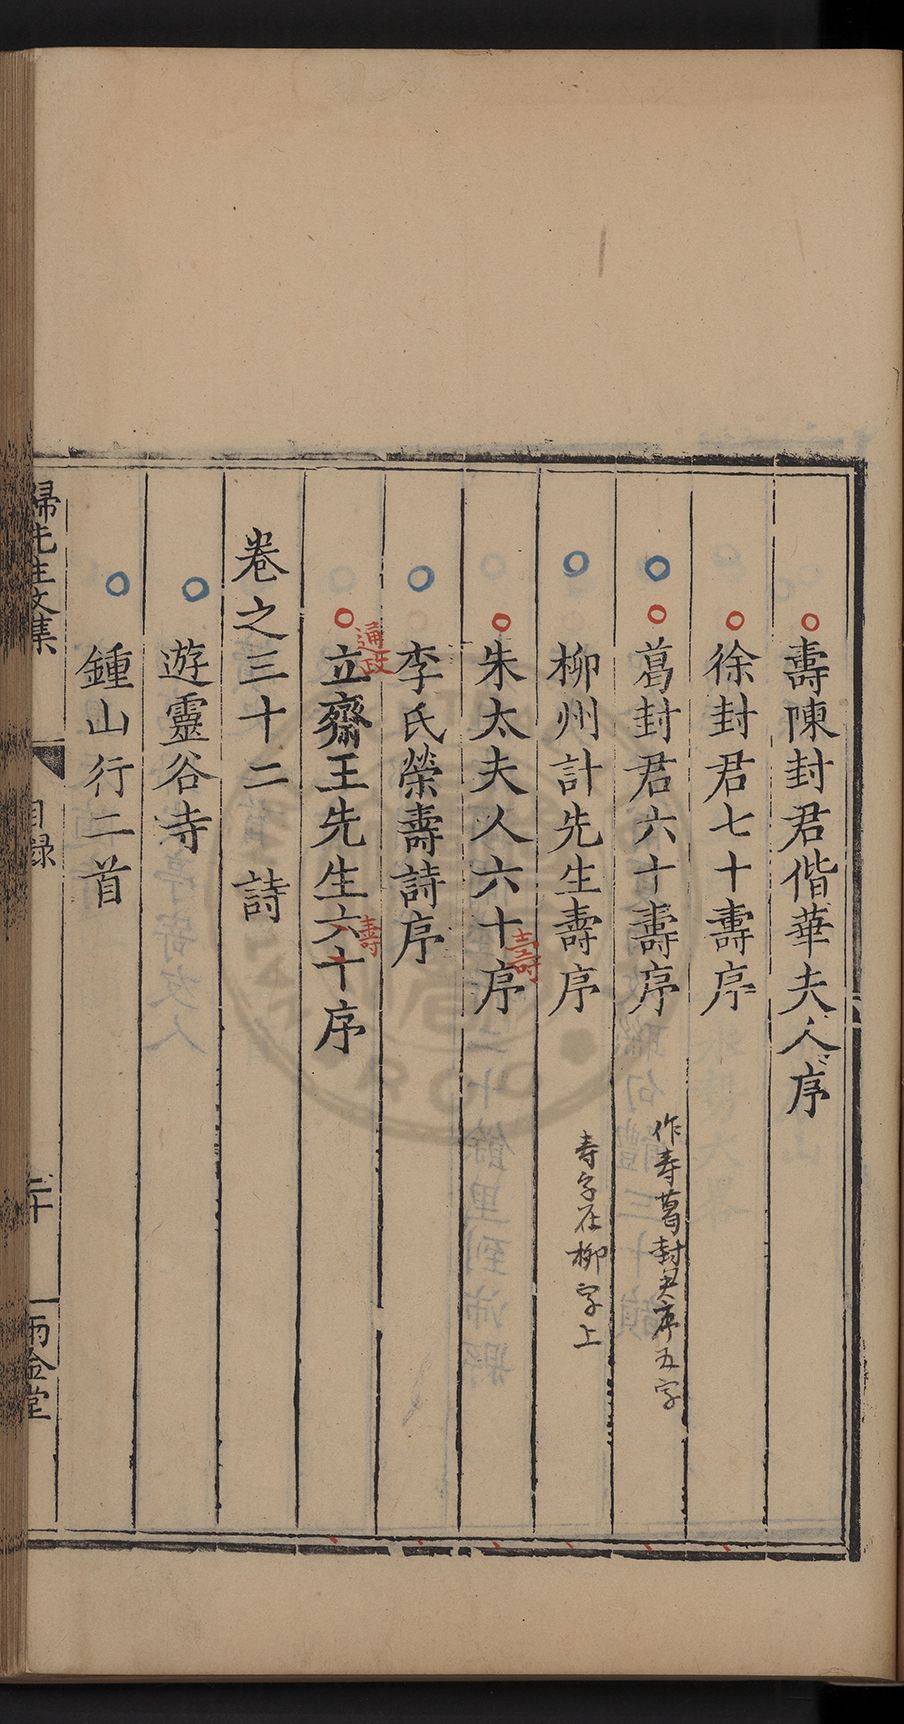 壽陳封君偕華夫人序
徐封君七十壽序
葛封君六十壽序
作寿葛封君序五字
柳州計先生壽序
寿字在柳字上
朱太夫人六十序
壽
李氏榮壽詩序
通政
立齋王先生六十序
壽
卷之三十二 詩
遊靈谷寺
鍾山行二首
歸先生文集
目錄
二十
雨金堂